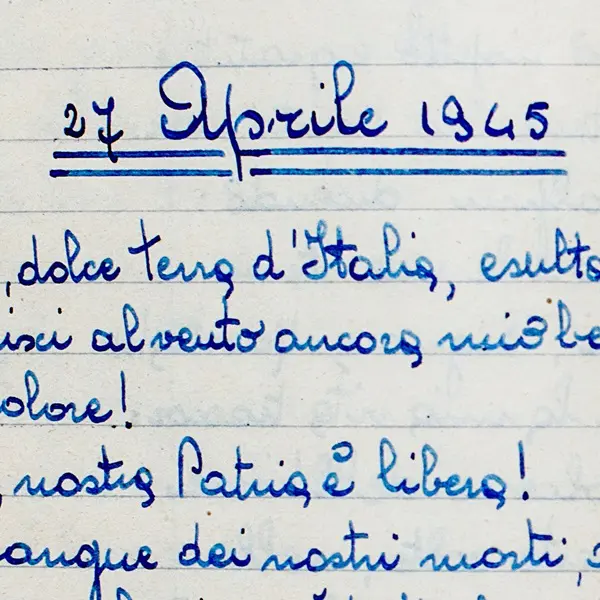 27 Aprile 1945
, dolce terra d'Italia, esulta
isci al vento ancora mio be
olore!
, nostra Patria è libera!
angue dei nostri morti,